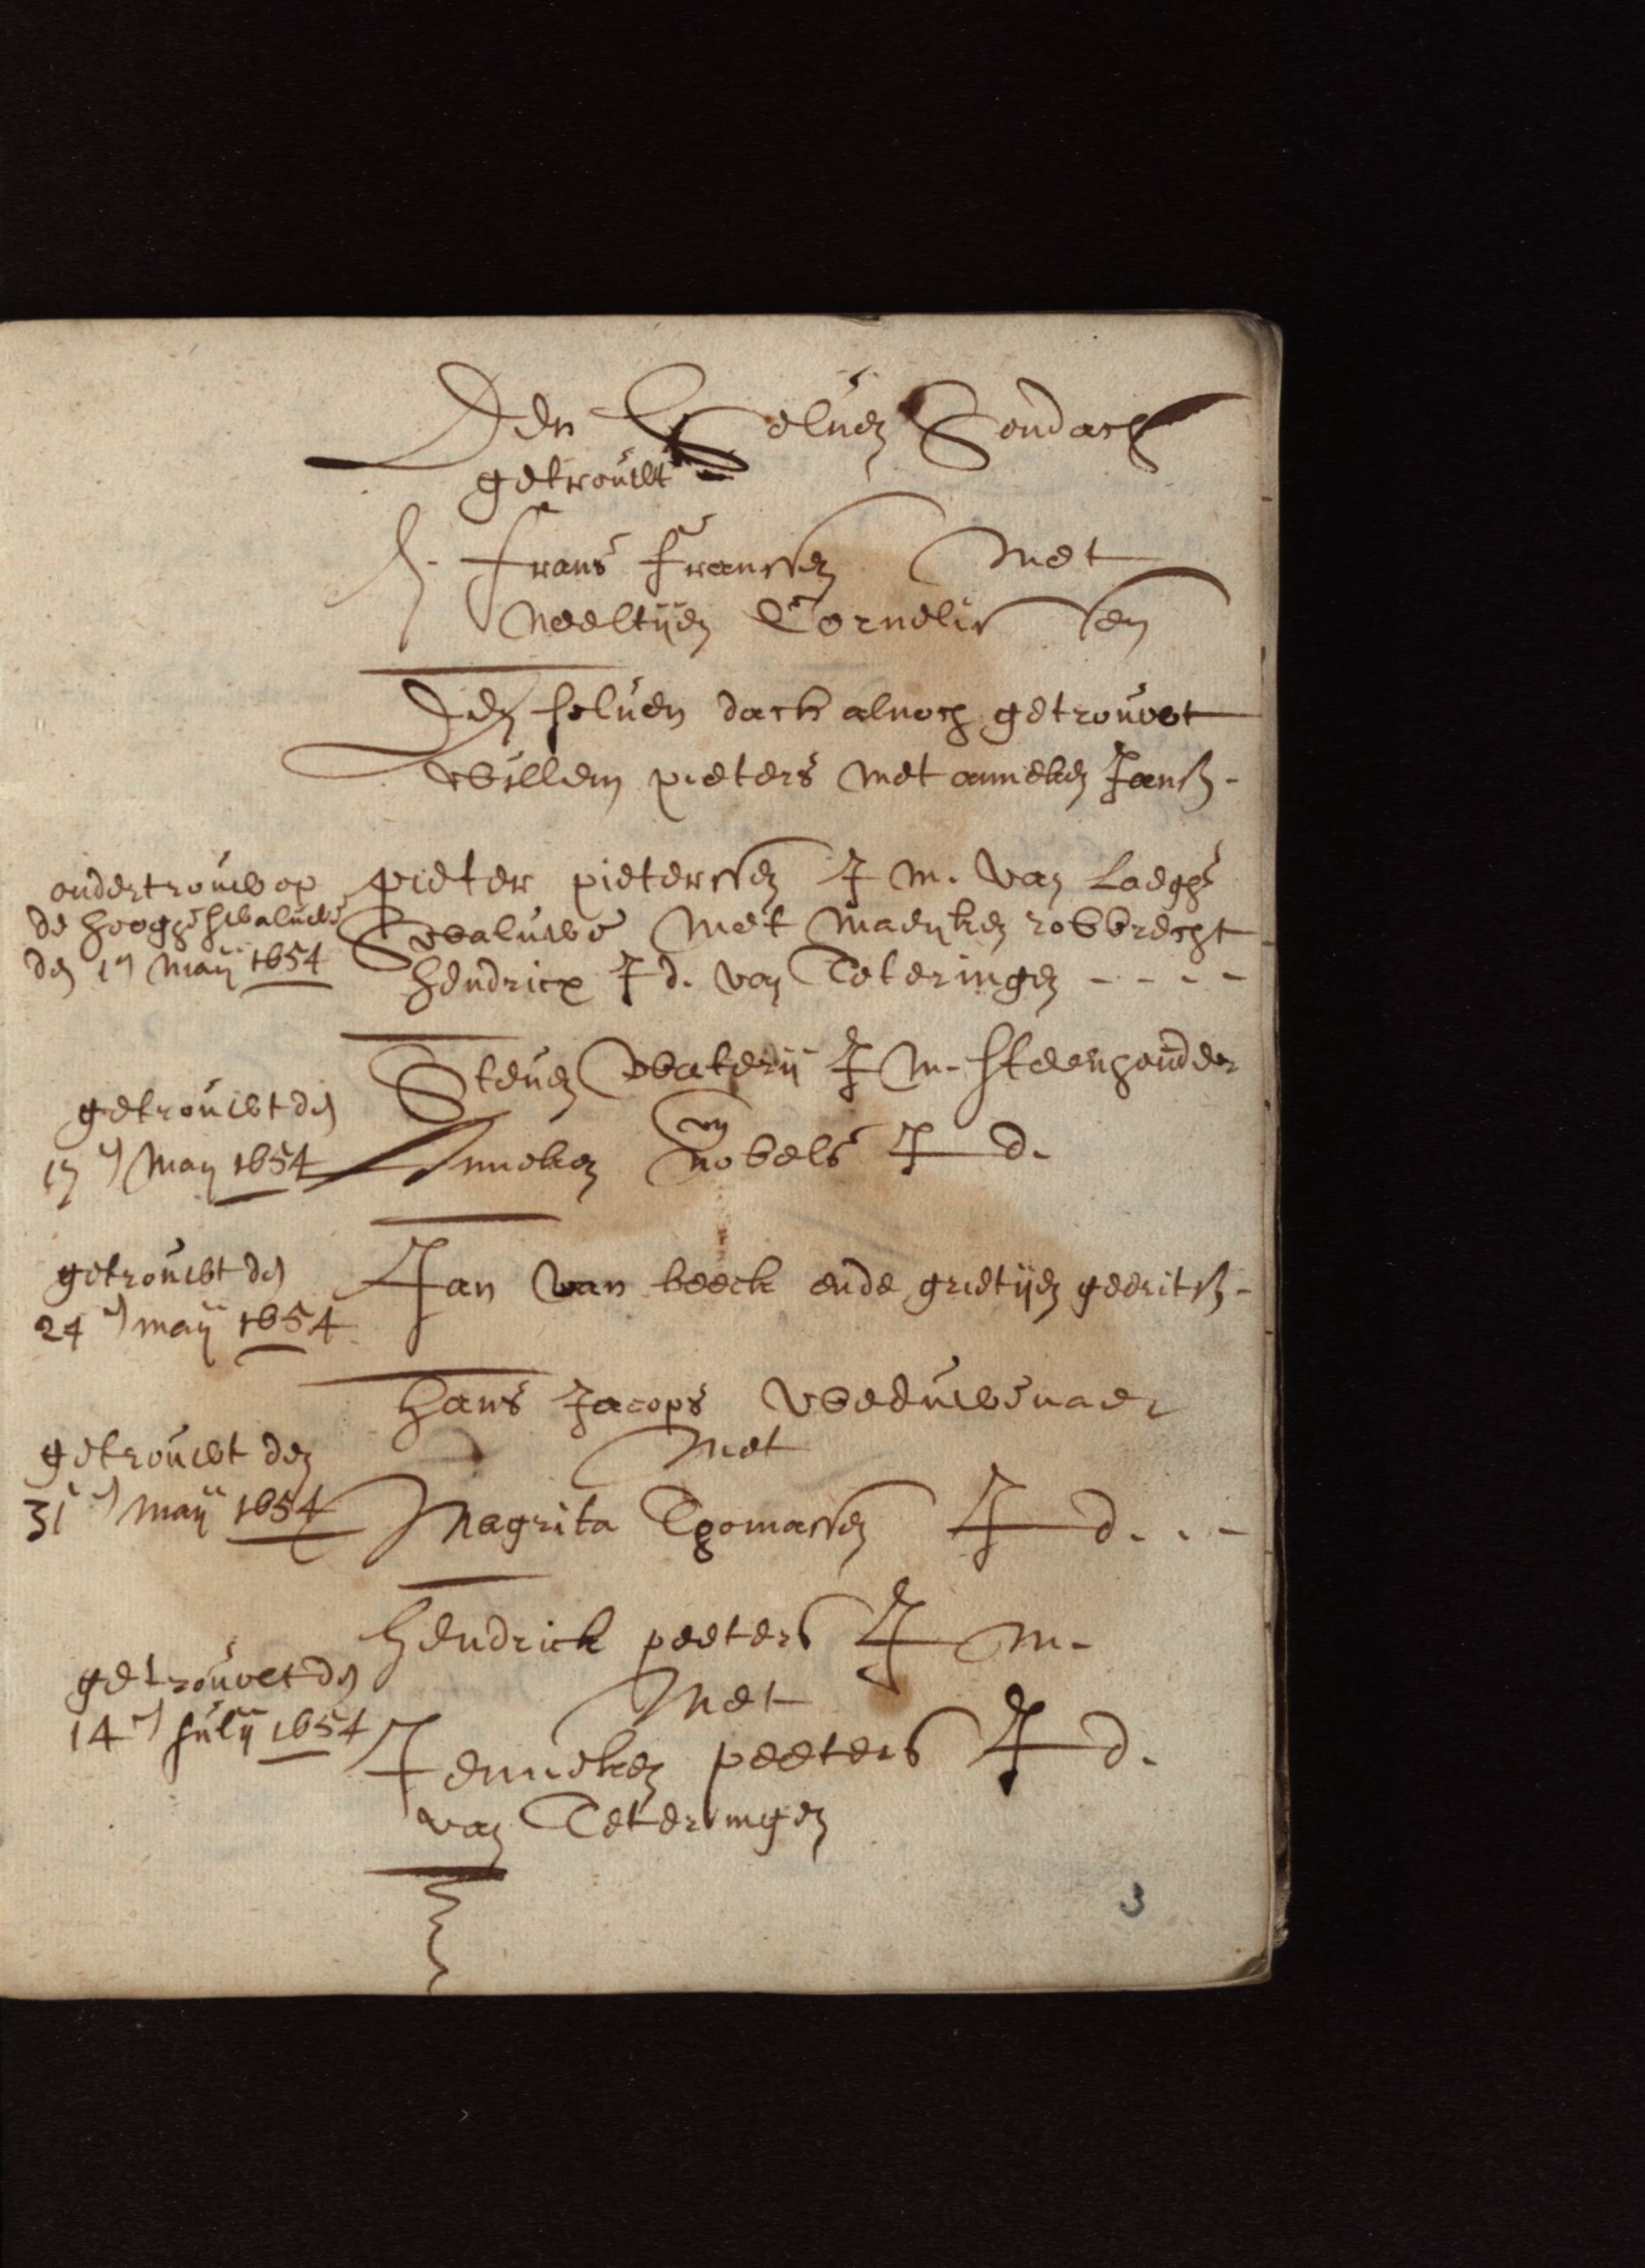 Den Seluen Sondach
getrouwt
frans franssen Met
Neeltijen Cornelissen
Den seluen dach alnoch getrouwet
willem pieters met anneken Jansz -
ondertrouw op
de hooghe swaluwe
den 17 Maij 1654
pieter pieterssen J M. van Laeghe
Swaluwe Met Maeijken robbrecht
hendricx J d. van Teteringen - - - -
getrouwt den
17 May 1654
Steuen waterij J M. steenhouder
en
Anneken nobels J d.
getrouwt den
24 maij 1654
Jan van beeck ende grietijen geeritsz -
getrouwt den
31 Maij 1654
hans Jacops weduwenaer
Met
Magrita Thomassen J d. . . -
getrouwet den
14 Julij 1654
hendrick peeters J M.
Met
Jenneken peeters J d.
van Teteringen
3